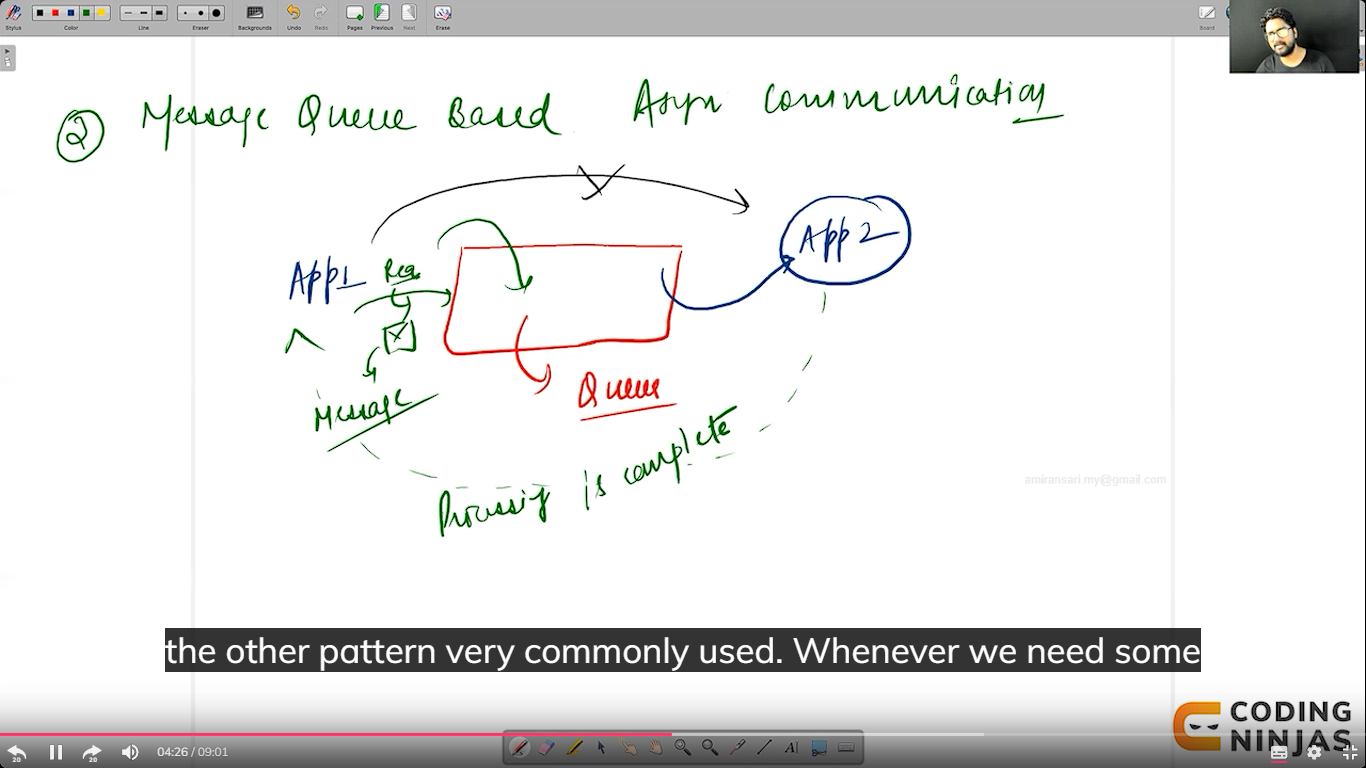 Stylus
Color
Line
Eraser
Backgrounds
Undo
Redo
Pages
Previous
Next
Erase
Board
2 Message Queue Based Asyn Communication
App1 Req
App2
Message
Queue
Processing is complete
amiransari.my@gmail.com
the other pattern very commonly used. Whenever we need some
CODING
NINJAS
20
20
04:26 / 09:01
A